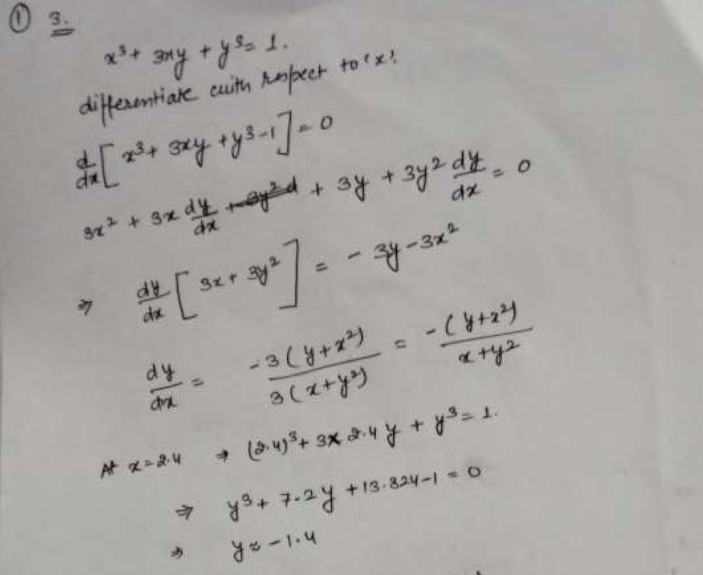 ① 3.
x³ + 3xy + y³ = 1.
differentiate with respect to 'x'.
d/dx [x³ + 3xy + y³ - 1] = 0
3x² + 3x dy/dx + 3y² d + 3y + 3y² dy/dx = 0
⇒ dy/dx [3x + 3y²] = - 3y - 3x²
dy/dx = -3(y + x²) / 3(x + y²) = -(y + x²) / x + y²
At x = 2.4 → (2.4)³ + 3 × 2.4 y + y³ = 1.
⇒ y³ + 7.2y + 13.824 - 1 = 0
⇒ y ≈ -1.4